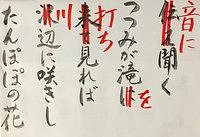 音に
伝え聞く
つつみが滝はを
打ち
来て見れば
川
沢辺に咲きし
たんぽぽの花